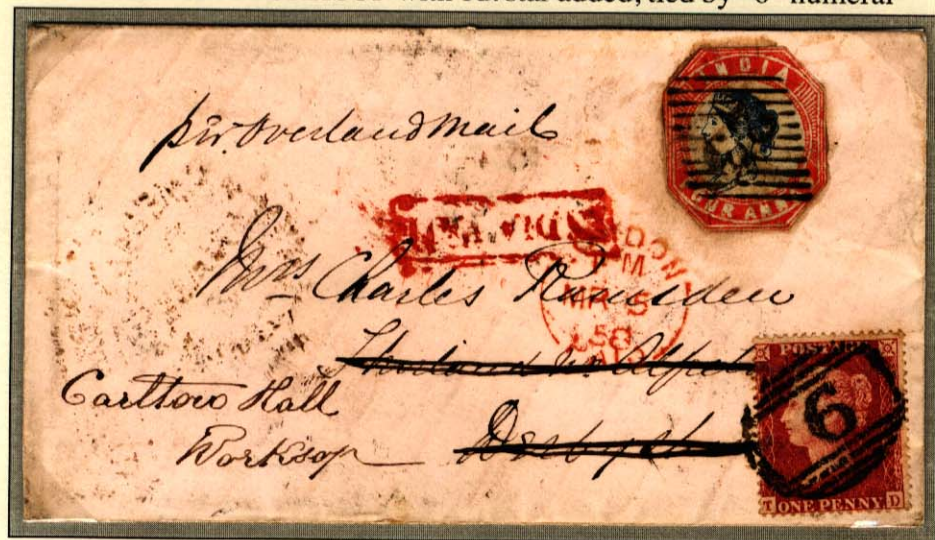 with 1d. star added, tied by "6" numeral
INDIA
FOUR ANNAS
per Overland Mail
INDIA PAID
LONDON
MR 5
58
PAID
Mrs Charles Ramsden
Carlton Hall
Worksop
Derbysh
POSTAGE
6
T ONE PENNY D